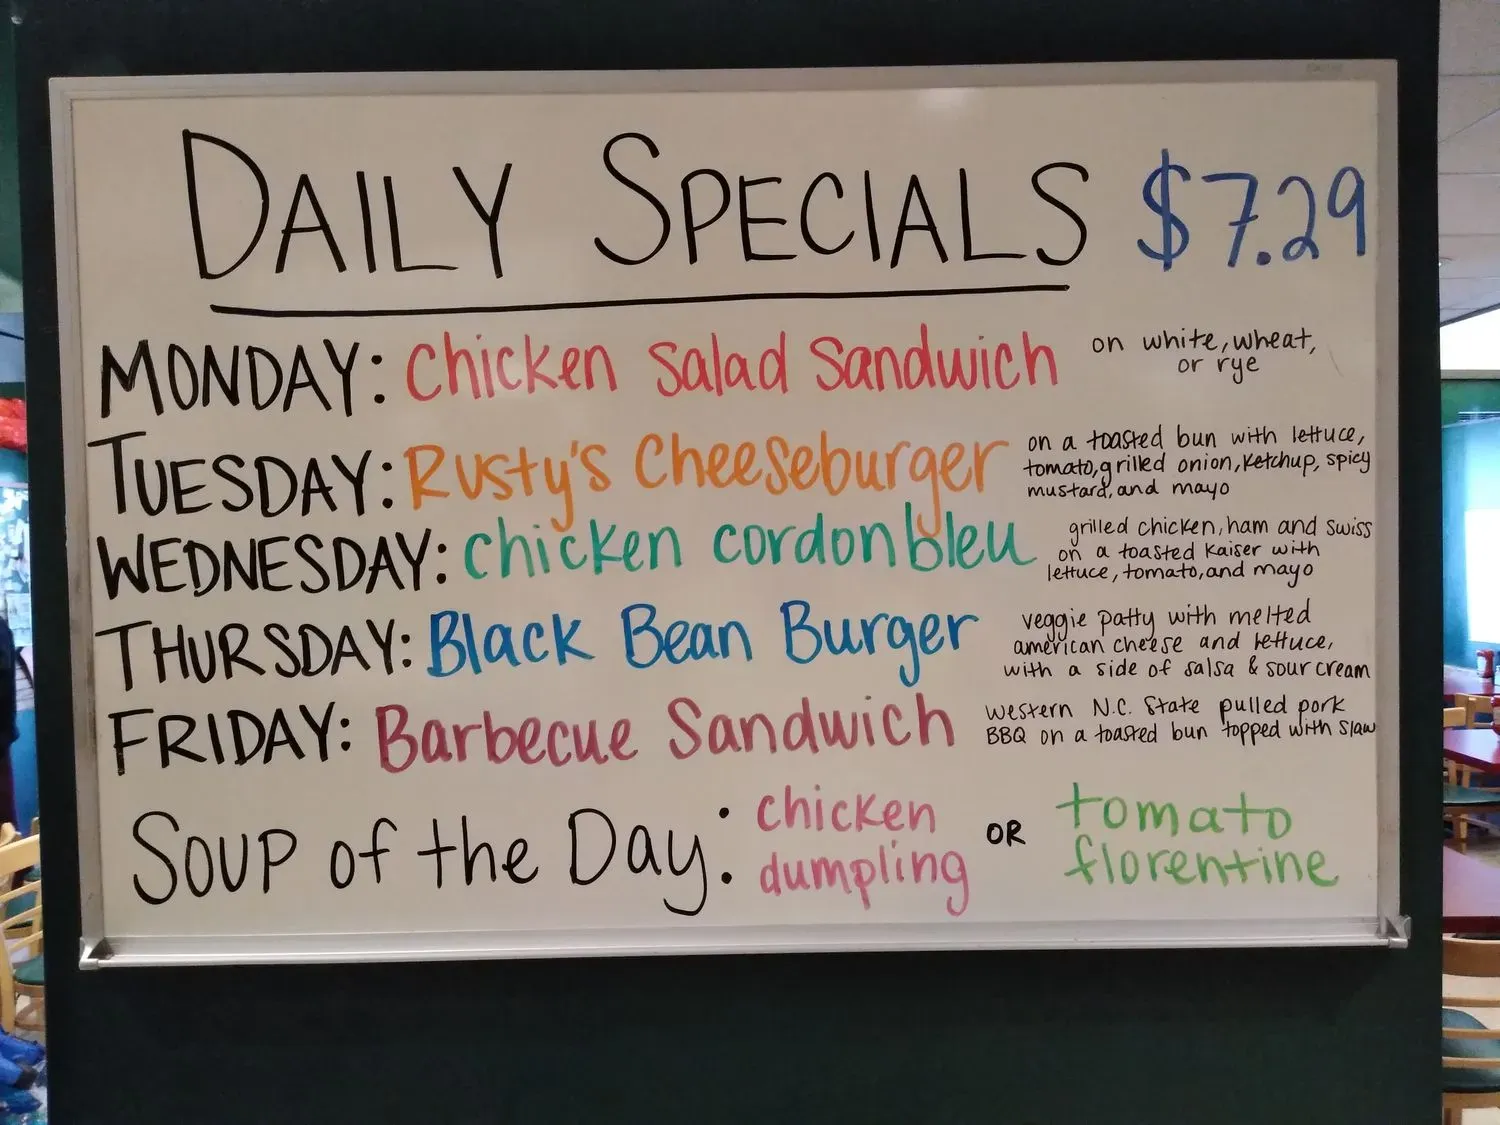 DAILY SPECIALS $7.29
MONDAY: chicken salad sandwich
on white, wheat,
or rye
TUESDAY: Rusty's Cheeseburger
on a toasted bun with lettuce,
tomato, grilled onion, ketchup, spicy
mustard, and mayo
WEDNESDAY: chicken cordon bleu
grilled chicken, ham and swiss
on a toasted kaiser with
lettuce, tomato, and mayo
THURSDAY: Black Bean Burger
veggie patty with melted
american cheese and lettuce,
with a side of salsa & sour cream
FRIDAY: Barbecue Sandwich
western N.C. State pulled pork
BBQ on a toasted bun topped with slaw
SOUP of the Day: chicken
dumpling
OR
tomato
florentine